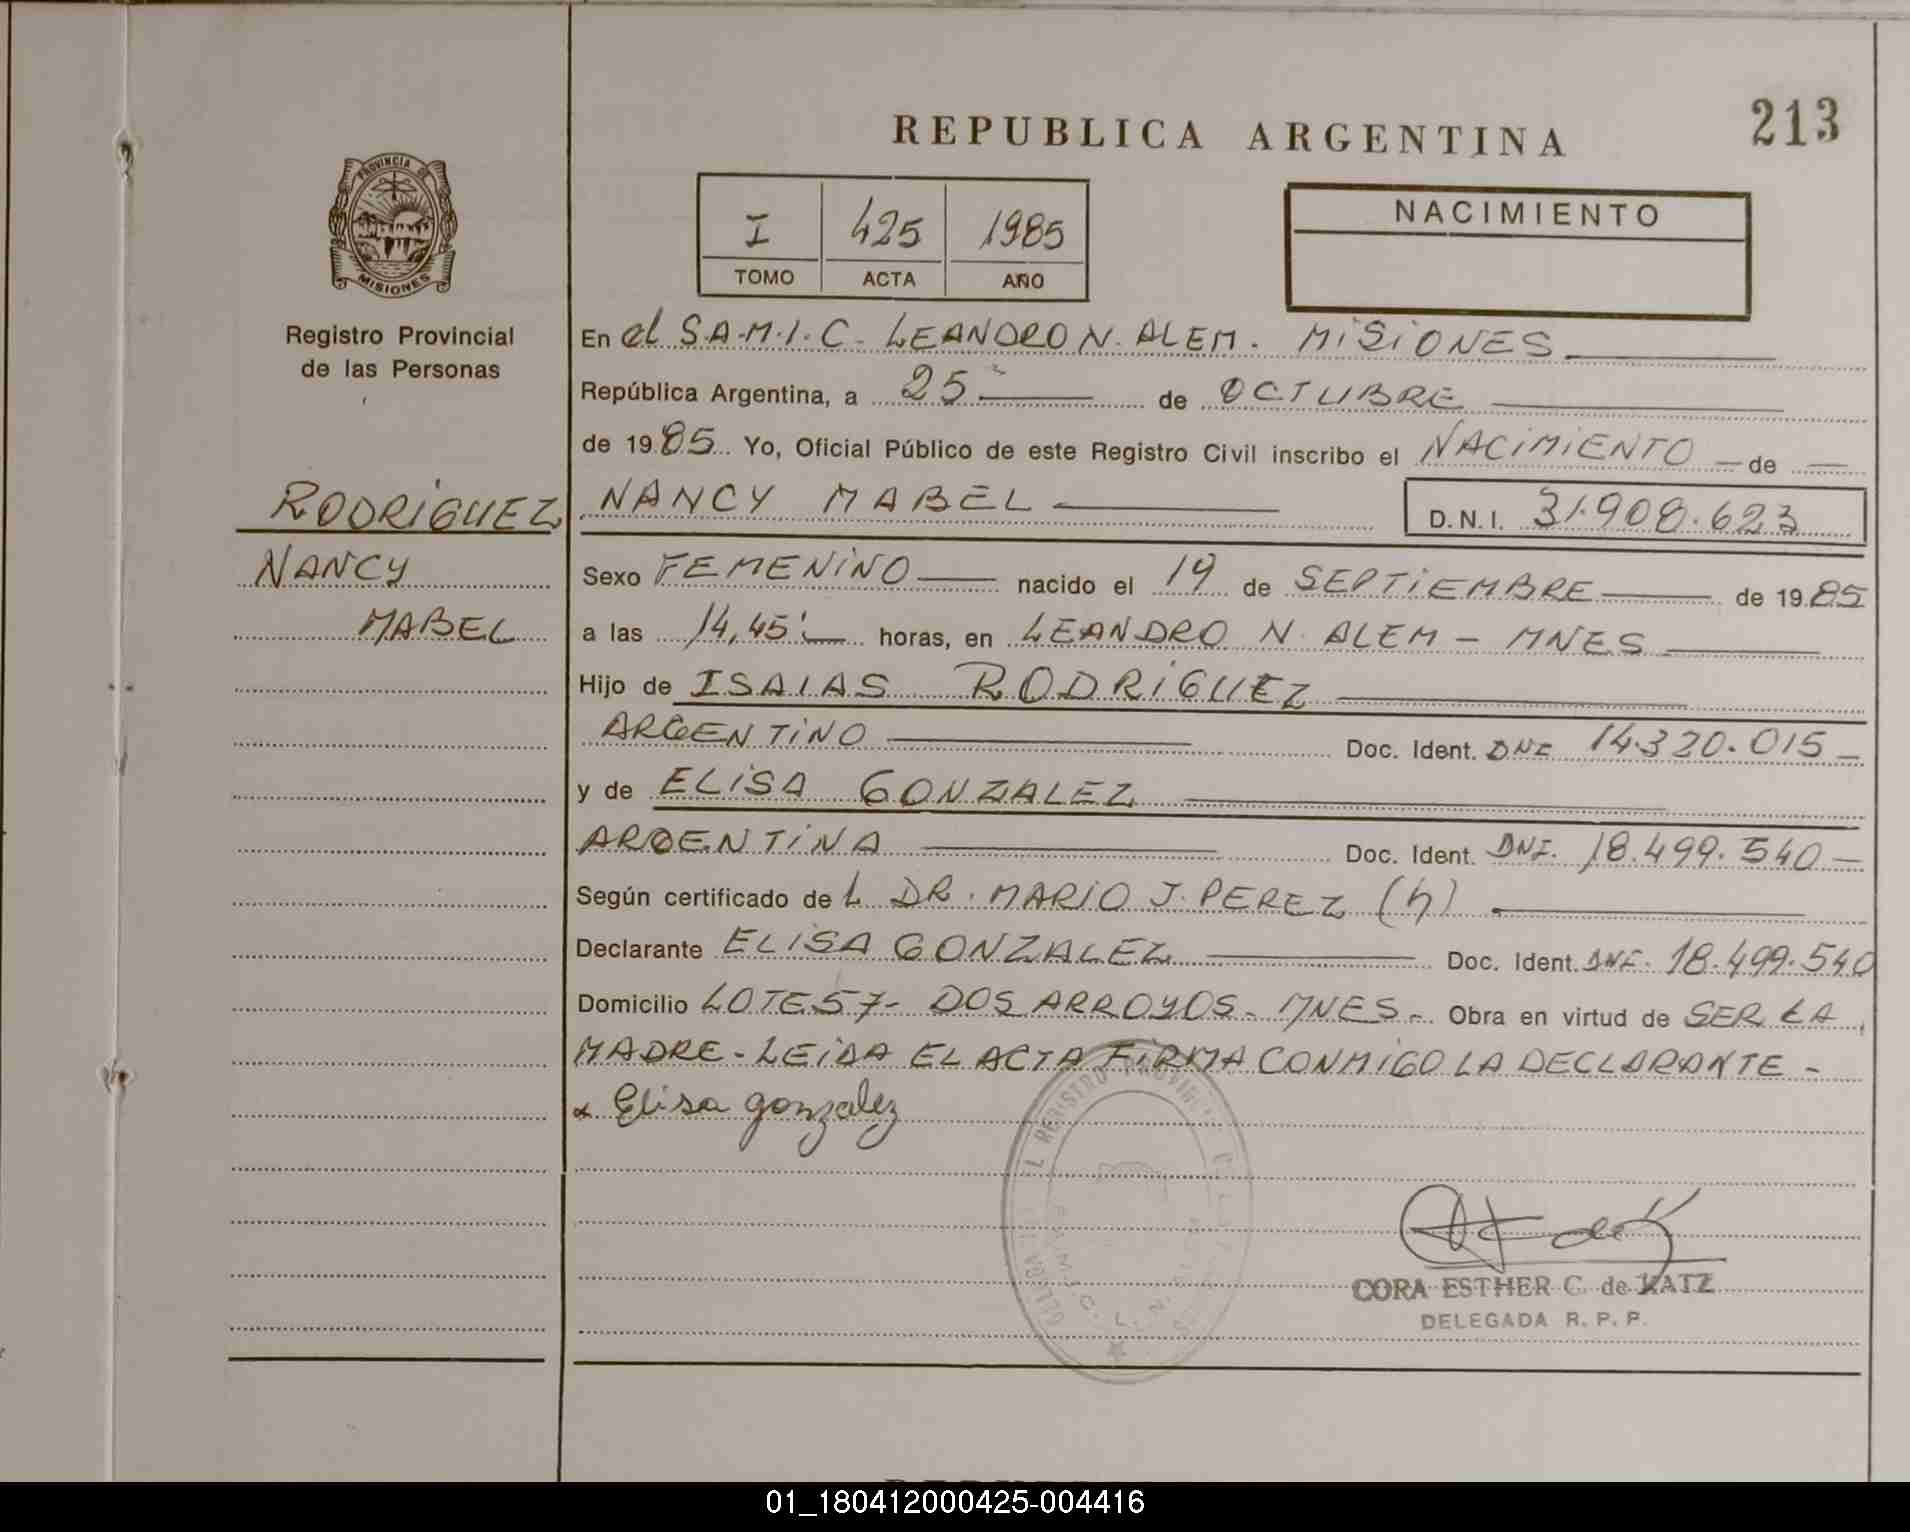 213
REPUBLICA ARGENTINA
PROVINCIA DE
MISIONES
Registro Provincial
de las Personas
I 425 1985
TOMO ACTA AÑO
NACIMIENTO
En el S.A.M.I.C. LEANDRO N. ALEM. MISIONES
República Argentina, a 25 de OCTUBRE
de 1985 Yo, Oficial Público de este Registro Civil inscribo el NACIMIENTO de
RODRIGUEZ
NANCY
MABEL
NANCY MABEL
D.N.I. 31.908.623
Sexo FEMENINO nacido el 19 de SEPTIEMBRE de 1985
a las 14,45' horas, en LEANDRO N. ALEM - MNES
Hijo de ISAIAS RODRIGUEZ
ARGENTINO Doc. Ident. DNI 14.320.015
y de ELISA GONZALEZ
ARGENTINA Doc. Ident. DNI. 18.499.540
Según certificado de L DR. MARIO J. PEREZ (h)
Declarante ELISA GONZALEZ Doc. Ident. DNI. 18.499.540
Domicilio LOTE 57- DOS ARROYOS - MNES - Obra en virtud de SER LA
MADRE - LEIDA EL ACTA FIRMA CONMIGO LA DECLARANTE -
x Elisa gonzalez
REGISTRO PROVINCIAL
CORA ESTHER C. de KATZ
DELEGADA R. P. P.
01_180412000425-004416